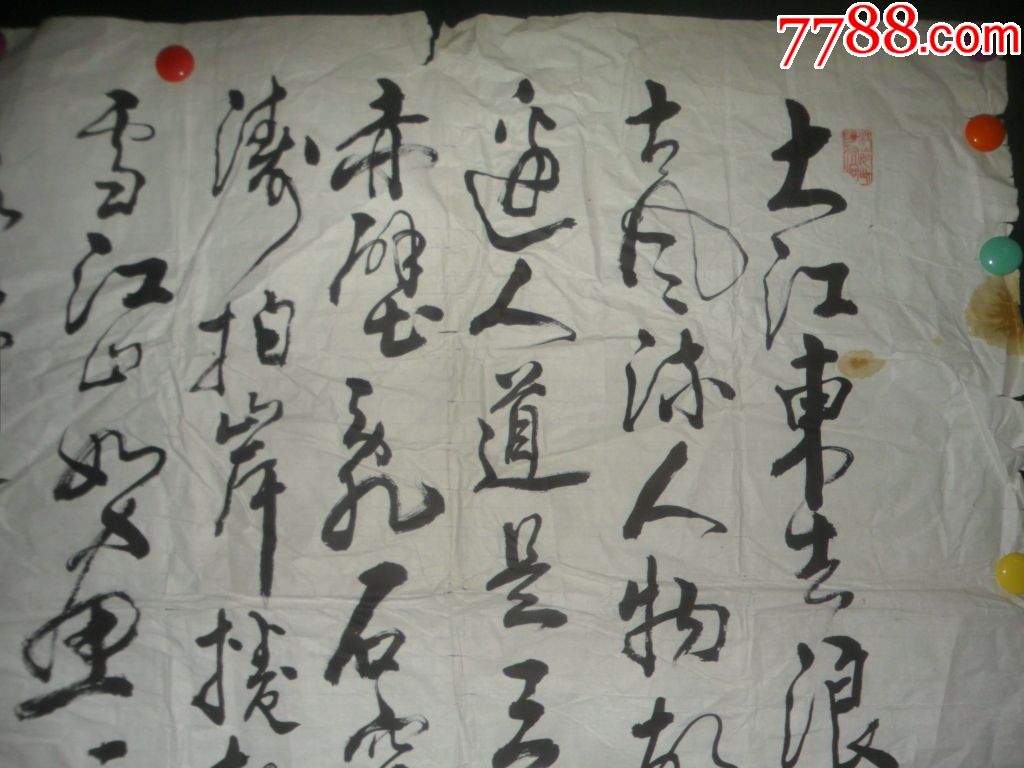 7788.com
大江東去浪
古风流人物故
邊人道是三
赤壁乱石穿
濤拍岸捲起
雪江山如畫一